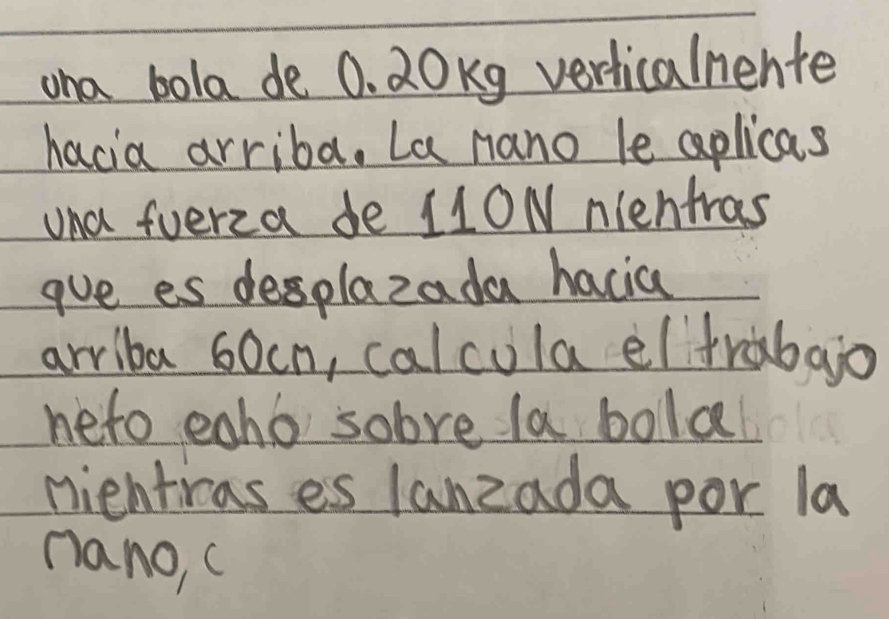 una bola de 0.20Kg verticalmente
hacia arriba. La mano le aplicas
una fuerza de 110N mientras
que es desplazada hacia
arriba 60cm, calcula el trabajo
neto echo sobre la bola
mientras es lanzada por la
mano, c